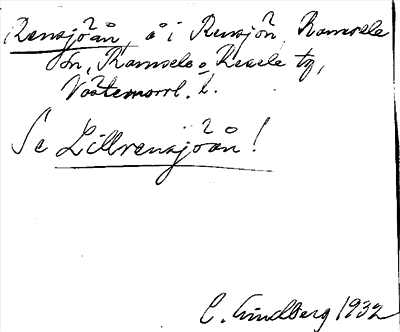 Rensjöån, å i Rensjön, Ramsele
sn, Ramsele o Resele tg,
Västernorrl. l.
Se Lillrensjöån!
C. Lindberg 1932